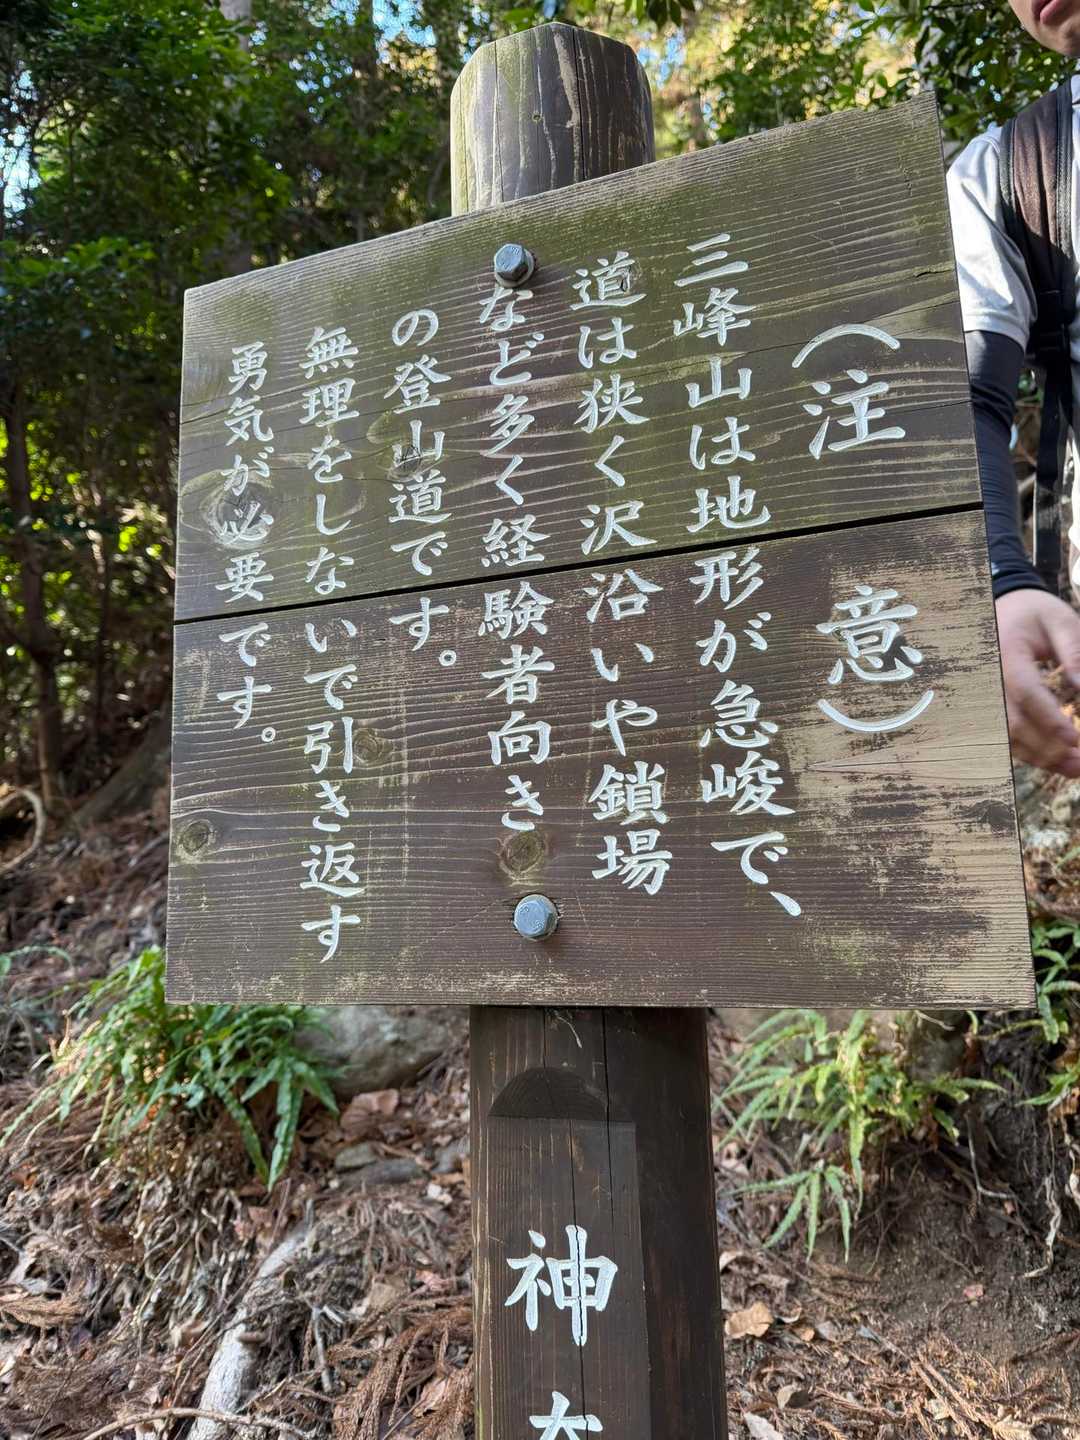 （注意）
三峰山は地形が急峻で、
道は狭く沢沿いや鎖場
など多く経験者向き
の登山道です。
無理をしないで引き返す
勇気が必要です。
神